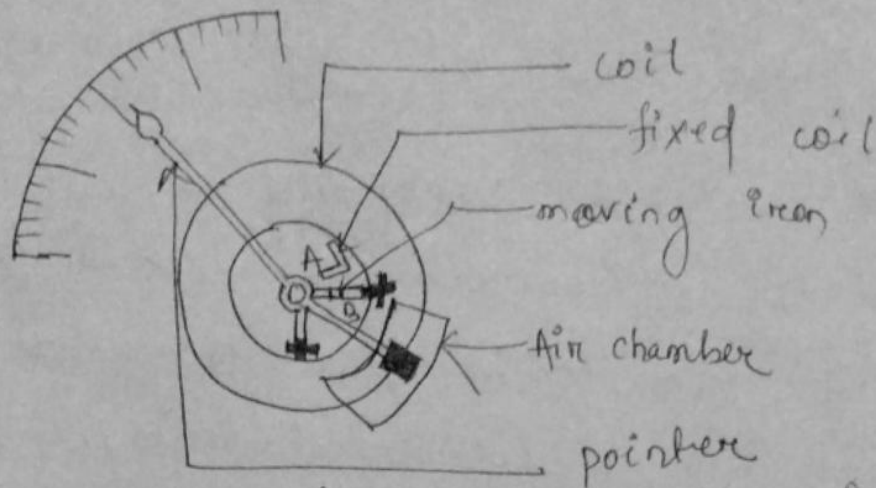 coil
fixed coil
moving iron
A
B
Air chamber
pointer